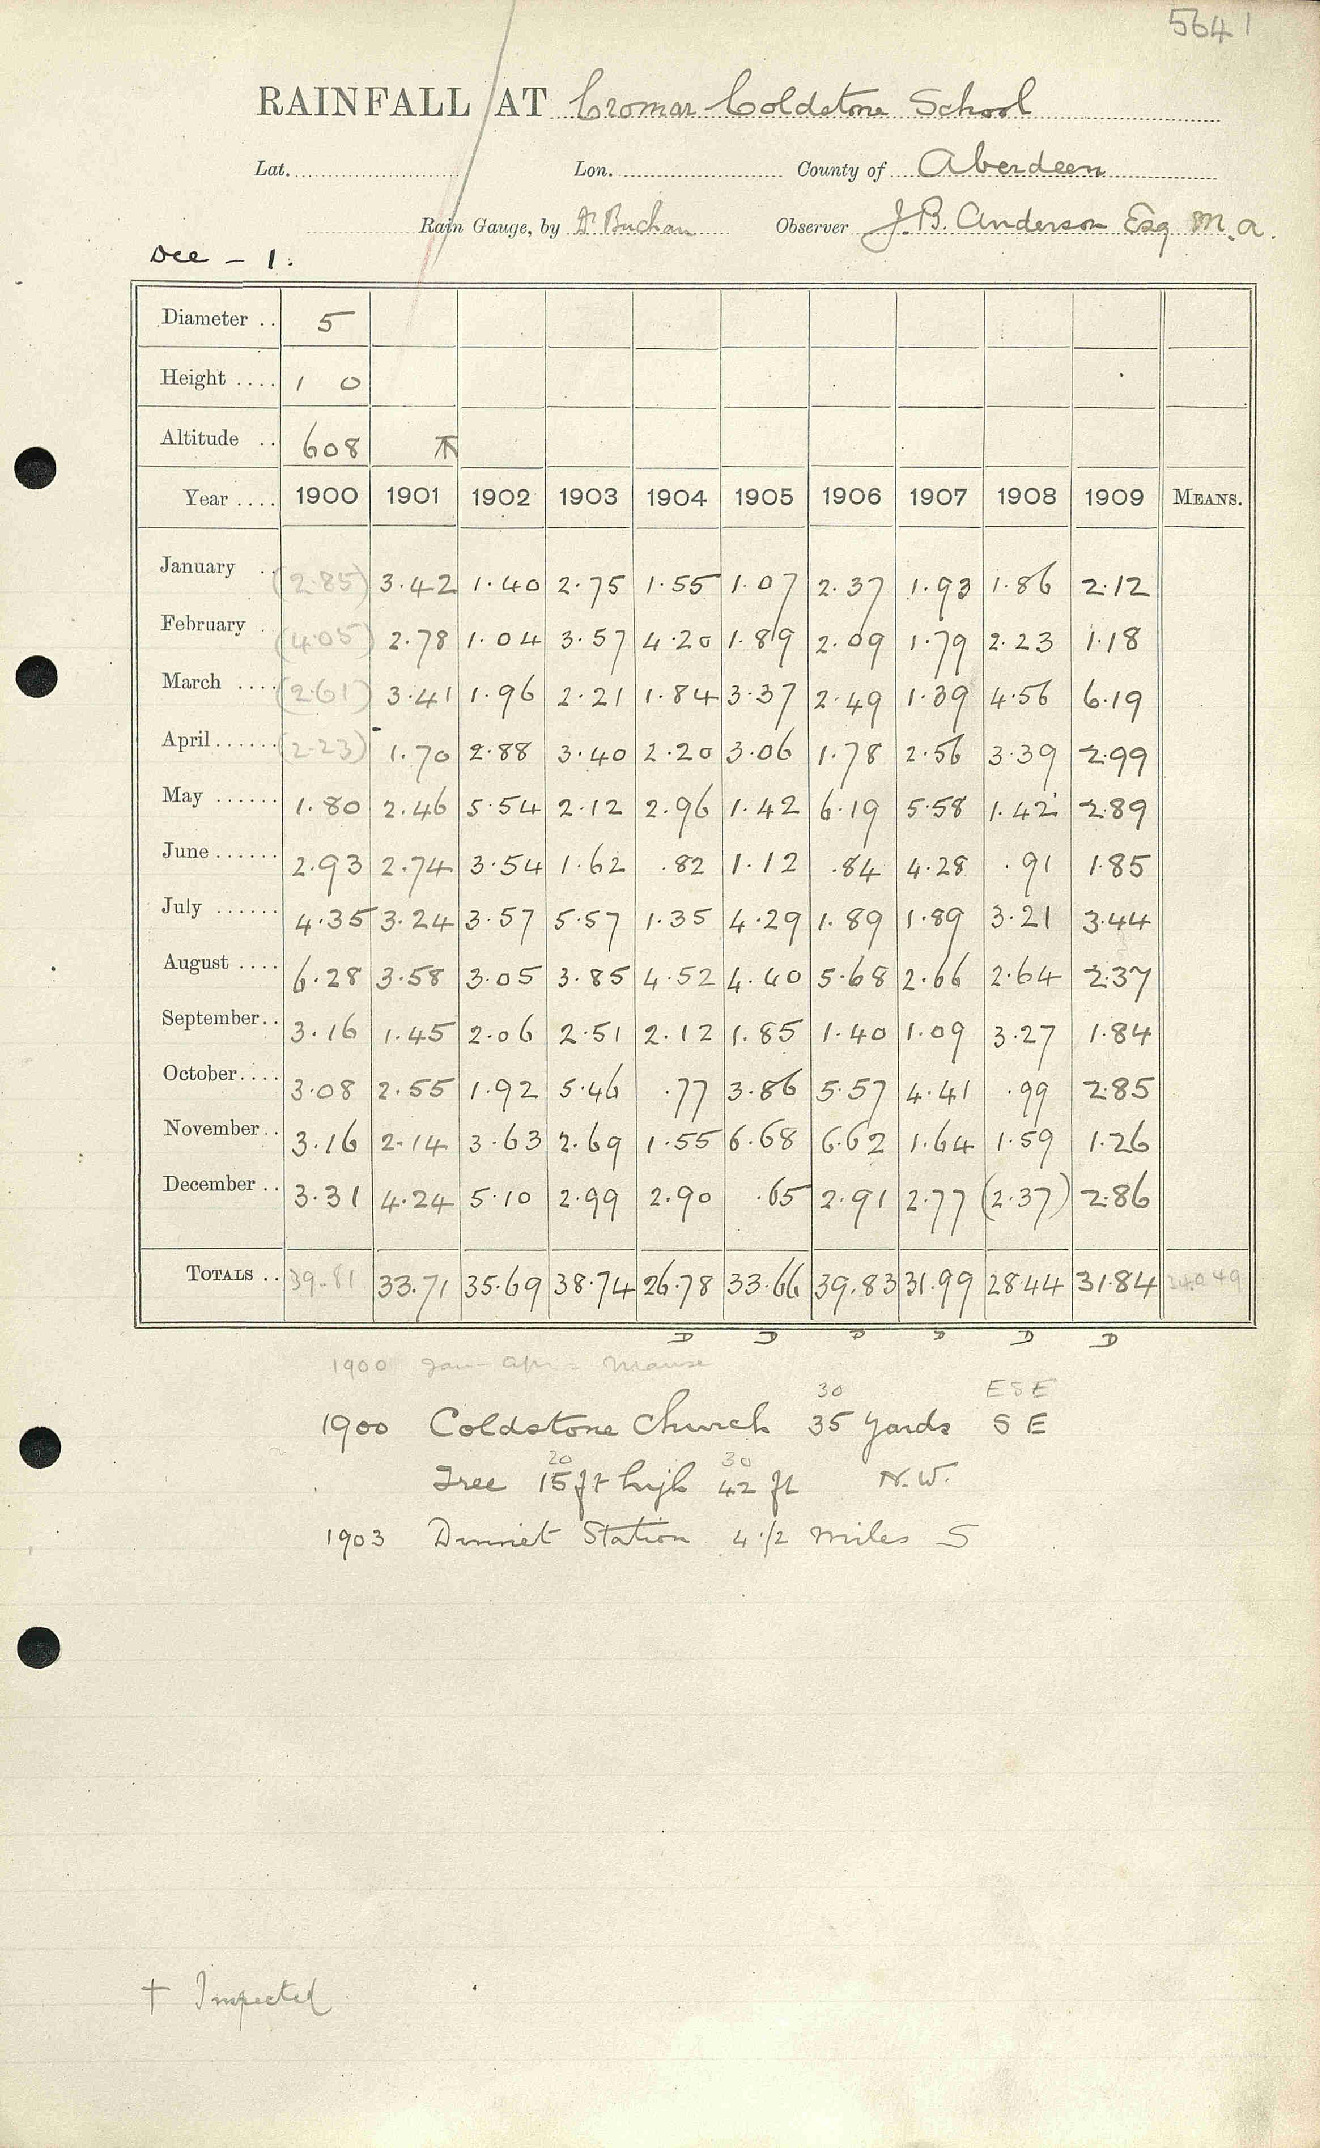 5641
RAINFALL AT Cromar Coldstone School
Lat. Lon. County of Aberdeen
Rain Gauge, by Dr Buchan Observer J.B. Anderson Esq M.A.
Dec - 1.
Diameter .. 5
Height .... 1 0
Altitude .. 608
Year .... 1900 1901 1902 1903 1904 1905 1906 1907 1908 1909 MEANS.
January .. (2.85) 3.42 1.40 2.75 1.55 1.07 2.37 1.93 1.86 2.12
February . (4.05) 2.78 1.04 3.57 4.20 1.89 2.09 1.79 2.23 1.18
March .... (2.61) 3.41 1.96 2.21 1.84 3.37 2.49 1.39 4.56 6.19
April...... (2.23) 1.70 2.88 3.40 2.20 3.06 1.78 2.56 3.39 2.99
May ...... 1.80 2.46 5.54 2.12 2.96 1.42 6.19 5.58 1.42 2.89
June...... 2.93 2.74 3.54 1.62 .82 1.12 .84 4.28 .91 1.85
July ...... 4.35 3.24 3.57 5.57 1.35 4.29 1.89 1.89 3.21 3.44
August .... 6.28 3.58 3.05 3.85 4.52 4.40 5.68 2.66 2.64 2.37
September.. 3.16 1.45 2.06 2.51 2.12 1.85 1.40 1.09 3.27 1.84
October.... 3.08 2.55 1.92 5.46 .77 3.86 5.57 4.41 .99 2.85
November.. 3.16 2.14 3.63 2.69 1.55 6.68 6.62 1.64 1.59 1.26
December .. 3.31 4.24 5.10 2.99 2.90 .65 2.91 2.77 (2.37) 2.86
TOTALS .. 39.81 33.71 35.69 38.74 26.78 33.66 39.83 31.99 28.44 31.84 340.49
D D D D D D
1900 Jan - Apr = Manse
30 ESE
1900 Coldstone Church 35 yards SE
20 30
Tree 15 ft high 42 ft N.W.
1903 Dinnet Station 4 1/2 miles S
† Inspected